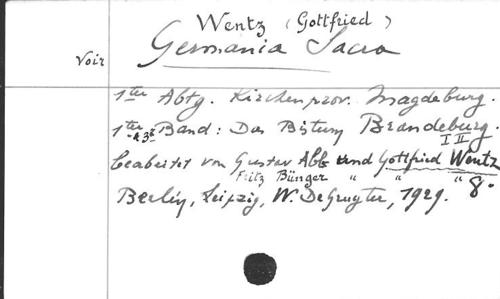 Wentz (Gottfried)
Voir Germania Sacra
1ter Abtg. Kirchenprov. Magdeburg.
1ter & 3e Band: Das Bistum Brandeburg. I II
beabeitet von Gustav Abb und Gottfried Wentz
Fritz Bünger " " " 8°
Berlin, Leipzig, W. DeGruyter, 1929.